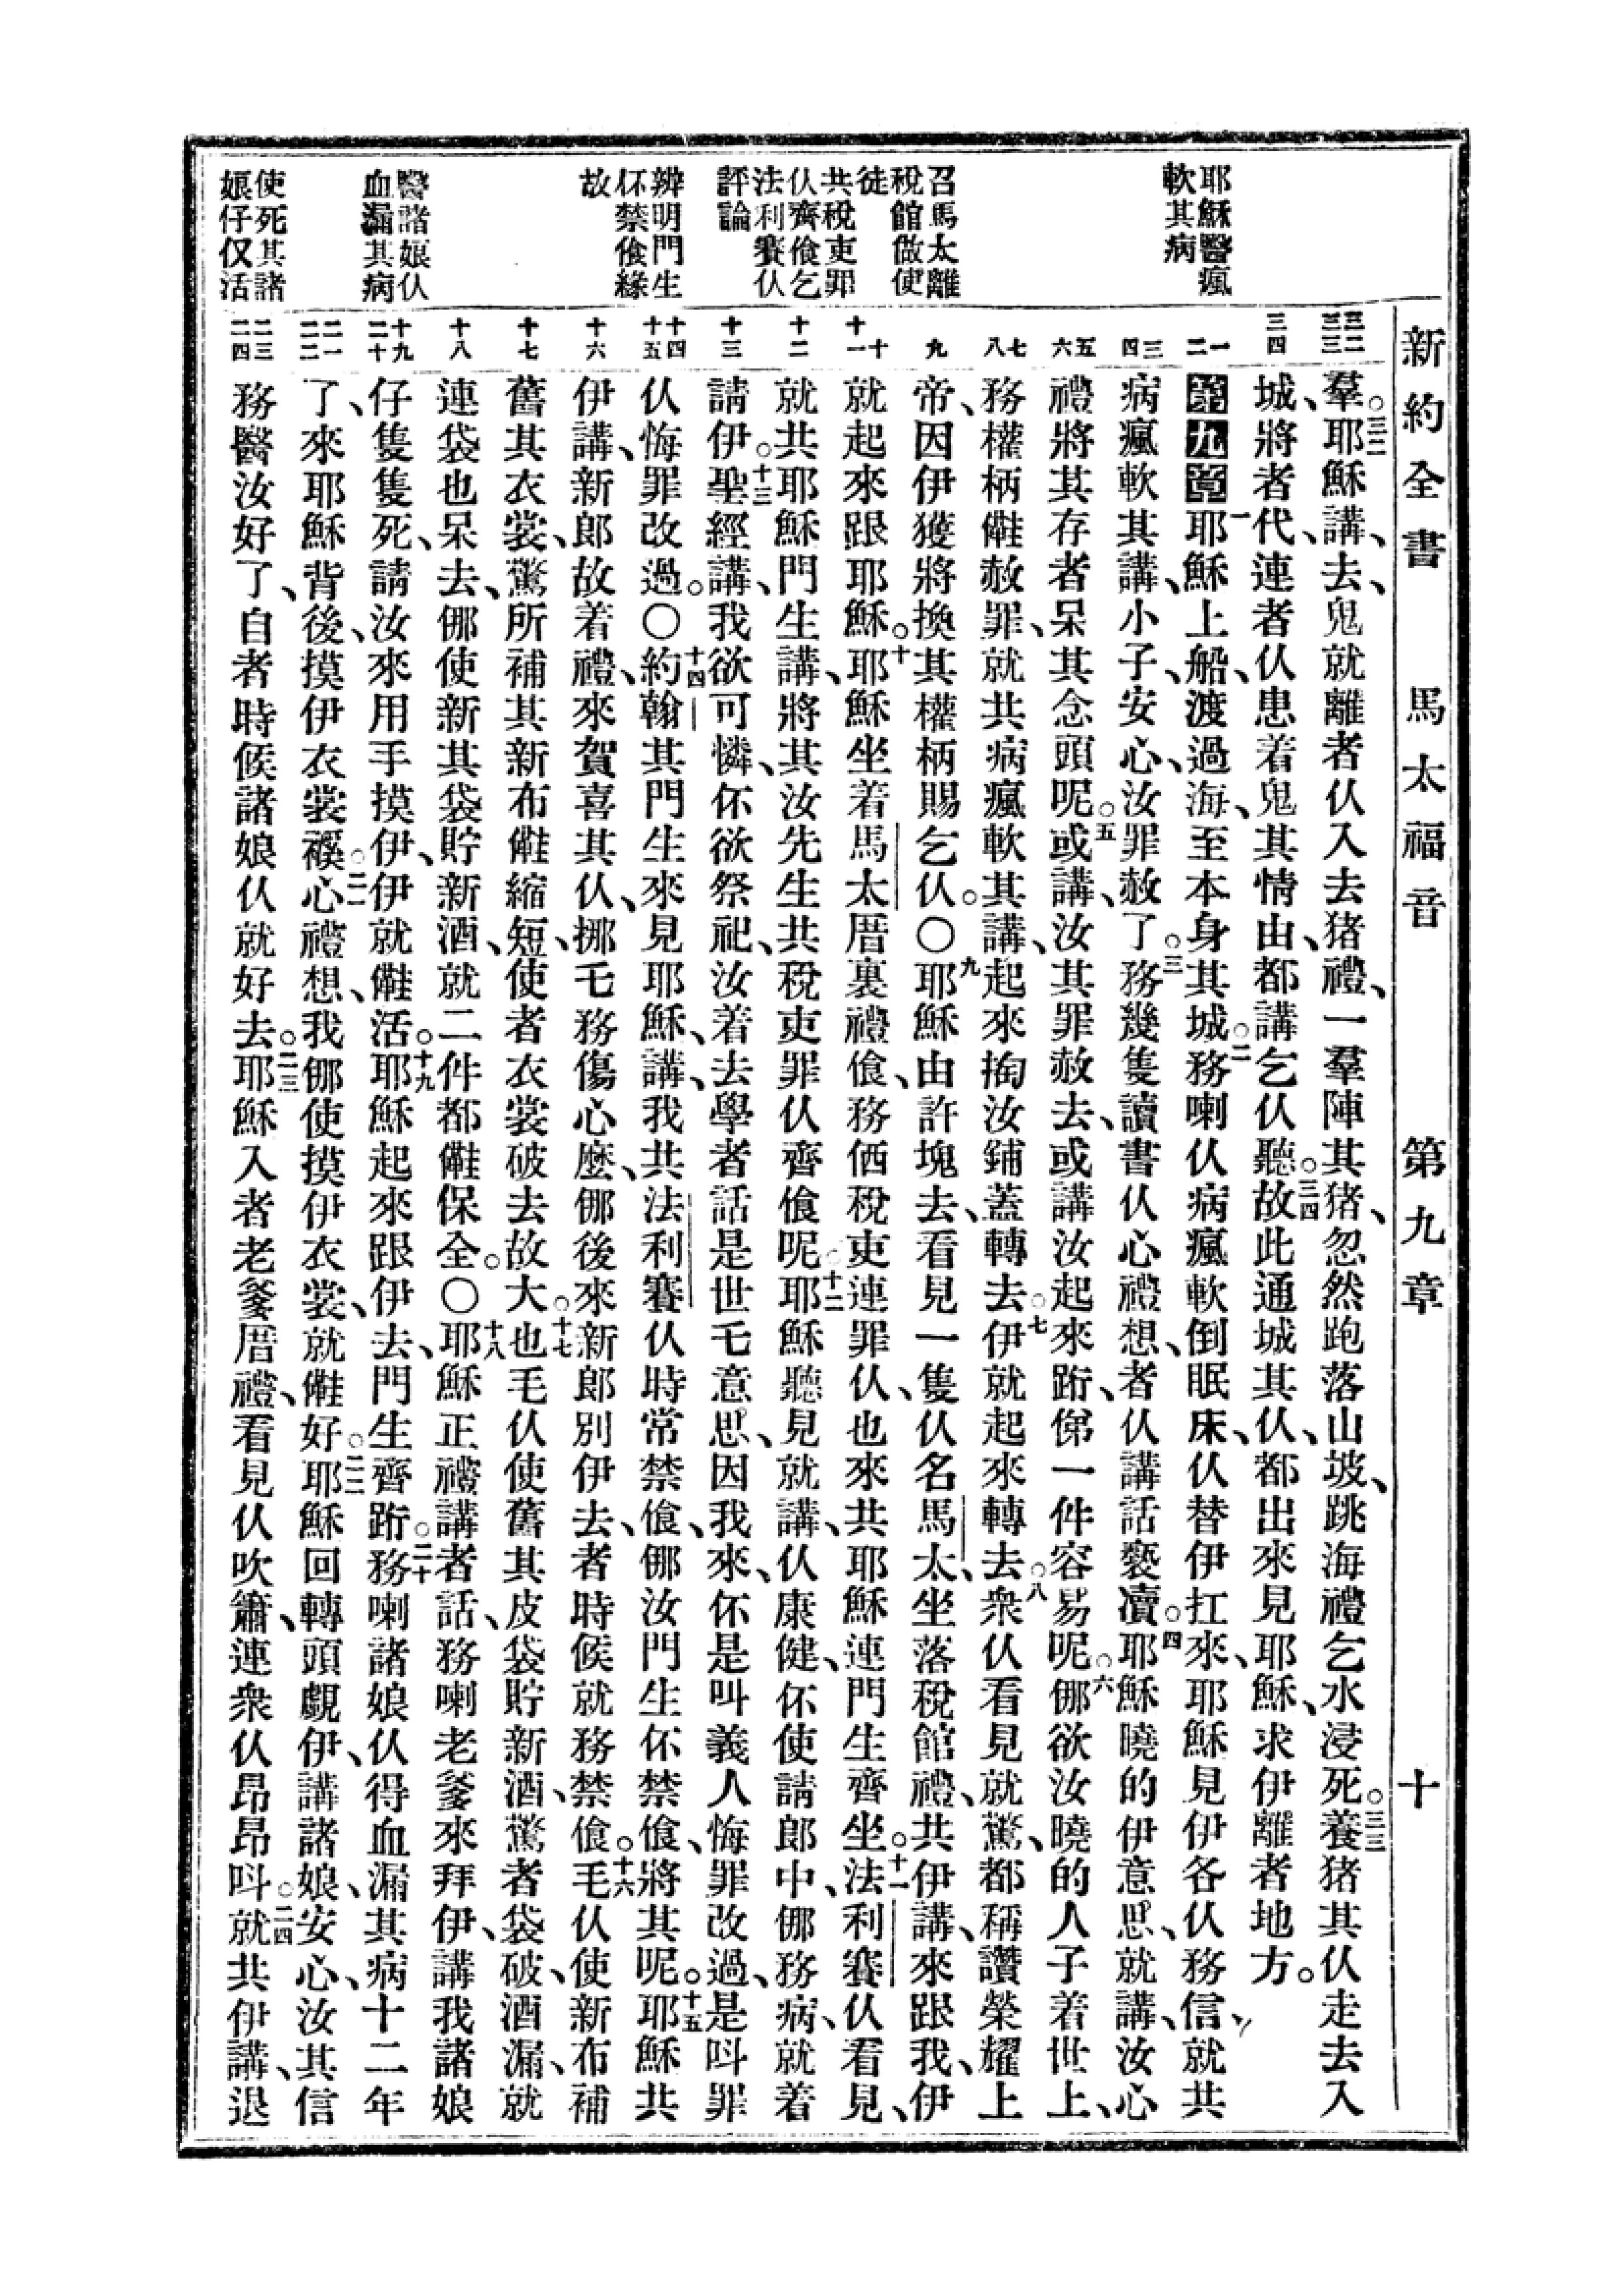 新約全書　馬太福音　第九章　十
耶穌醫瘋
軟其病
召馬太離
稅館做使
徒
共稅吏罪
仈齊飧乞
法利賽仈
評論
辨明門生
伓禁飧緣
故
醫諸娘仈
血漏其病
使死其諸
娘仔仅活
三二
三三
三四
一
二
三
四
五
六
七
八
九
十
十一
十二
十三
十四
十五
十六
十七
十八
十九
二十
二一
二二
二三
二四
羣。三二耶穌講、去、鬼就離者仈入去猪禮、一羣陣其猪、忽然跑落山坡、跳海禮乞水浸死。三三養猪其仈走去入
城、將者代、連者仈患着鬼其情由、都講乞仈聽。三四故此通城其仈、都出來見耶穌、求伊離者地方。
第九章一耶穌上船、渡過海、至本身其城。二務喇仈病瘋軟倒眠床、仈替伊扛來、耶穌見伊各仈務信、就共
病瘋軟其講、小子、安心、汝罪赦了。三務幾隻讀書仈心禮想、者仈講話褻瀆。四耶穌曉的伊意思、就講、汝心
禮將其存者呆其念頭呢。五或講、汝其罪赦去、或講汝起來跻、俤一件容易呢。六㑚欲汝曉的人子着世上、
務權柄㒕赦罪、就共病瘋軟其講、起來掏汝鋪蓋轉去。七伊就起來轉去。八衆仈看見就驚、都稱讚榮耀上
帝、因伊獲將換其權柄賜乞仈。〇九耶穌由許塊去、看見一隻仈名馬太、坐落稅館禮、共伊講、來跟我、伊
就起來跟耶穌。十耶穌坐着馬太厝裏禮飧、務価稅吏連罪仈、也來共耶穌連門生齊坐。十一法利賽仈看見、
就共耶穌門生講、將其汝先生共稅吏罪仈齊飧呢。十二耶穌聽見就講、仈康健、伓使請郎中、㑚務病、就着
請伊。十三聖經講、我欲可憐、伓欲祭祀、汝着去學者話是世乇意思、因我來、伓是叫義人悔罪改過、是呌罪
仈悔罪改過。〇十四約翰其門生來見耶穌、講、我共法利賽仈時常禁飧、㑚汝門生伓禁飧、將其呢。十五耶穌共
伊講、新郎故着禮、來賀喜其仈、挪乇務傷心麽、㑚後來新郎別伊去、者時候就務禁飧。十六毛仈使新布補
舊其衣裳、驚所補其新布㒕縮短、使者衣裳破去故大。十七也毛仈使舊其皮袋貯新酒、驚者袋破、酒漏、就
連袋也呆去、㑚使新其袋貯新酒、就二件都㒕保全。〇十八耶穌正禮講者話、務喇老爹來拜伊、講我諸娘
仔隻隻死、請汝來用手摸伊、伊就㒕活。十九耶穌起來跟伊去、門生齊跻。二十務喇諸娘仈得血漏其病十二年
了、來耶穌背後、摸伊衣裳襚。二一心禮想、我㑚使摸伊衣裳、就㒕好。二二耶穌回轉頭覷伊、講諸娘、安心、汝其信
務醫汝好了、自者時候諸娘仈就好去。二三耶穌入者老爹厝禮、看見仈吹簫、連衆仈昂昂呌。二四就共伊講、退